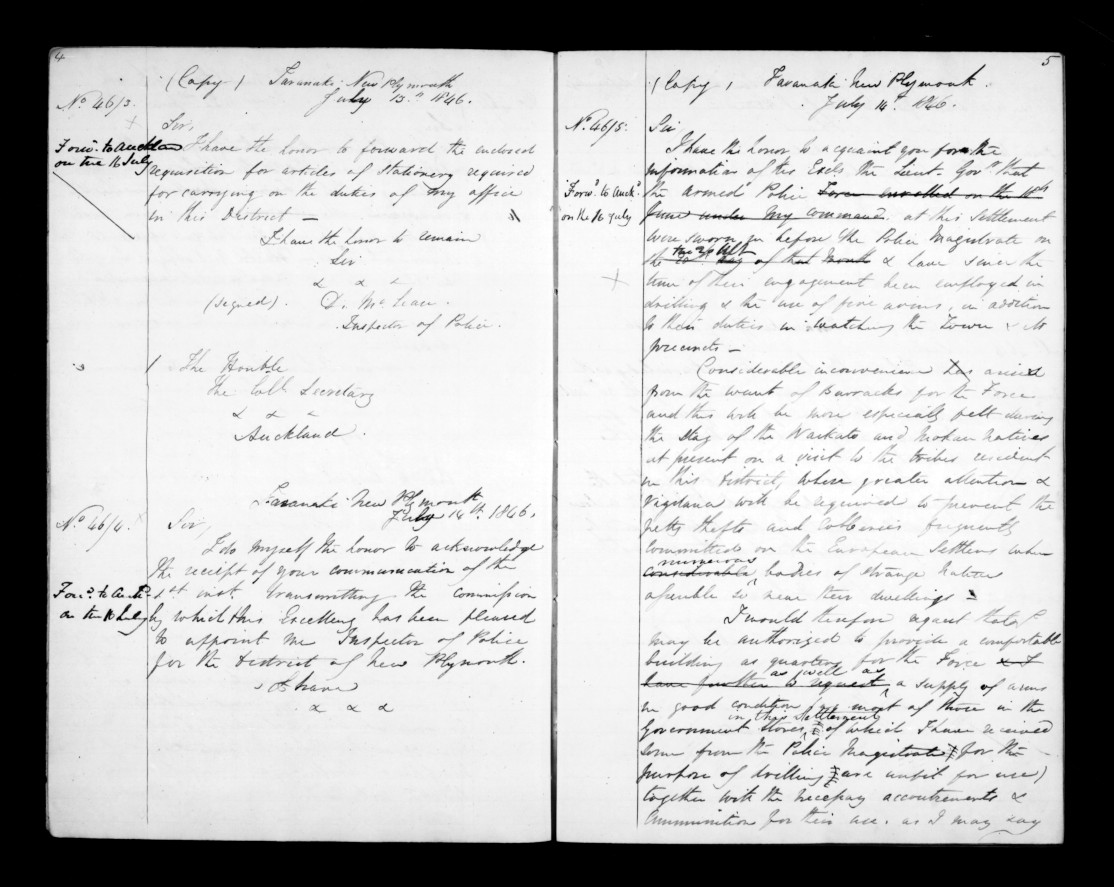 4
(Copy) Taranaki New Plymouth
July 13th 1846.
No 46/3.
Sir,
Forwd. to Auckland
on the 16 July
I have the honor to forward the enclosed
requisition for articles of Stationery required
for carrying on the duties of my office
in this District —
I have the honor to remain
Sir
(signed). D. McLean.
Inspector of Police.
The Honble
The Coll Secretary
Auckland.
Taranaki New Plymouth
July 14th 1846.
No 46/4.
Sir,
I do myself the honor to acknowledge
the receipt of your communication of the
Forwd. to Auckd.
on the 16 July
inst. transmitting the commission
by which His Excellency has been pleased
to appoint me Inspector of Police
for the District of New Plymouth.
I have
x x x
5
(Copy) Taranaki New Plymouth.
July 14th 1846.
No. 46/5.
Sir
I have the honor to acquaint you for the
information of His Excely the Lieut- Govr that
Forwd. to Auckd.
on the 16 July
the armed Police Force enrolled on the
June under my command. at this Settlement
were sworn in before the Police Magistrate on
the day of that month & have since the
time of their engagement been employed in
drilling & the use of fire arms, in addition
to their duties in watching the Town & its
precincts —
Considerable inconvenience has arisen
from the want of Barracks for the Force
and this will be more especially felt during
the stay of the Waikato and Mokau natives
at present on a visit to the tribes resident
in this District, where greater attention &
vigilance will be required to prevent the
petty thefts and robberies frequently
committed on the European Settlers when
numerous
considerable bodies of strange natives
assemble so near their dwellings —
I would therefore request that I
may be authorized to provide a comfortable
building as quarters for the Force & I
as well as
have further to request a supply of arms
in good condition for most of those in the
in this Settlement
Government Stores, of which I have received
some from the Police Magistrate for the
purpose of drilling are unfit for use)
together with the necessary accoutrements &
Ammunition for their use. as I may say